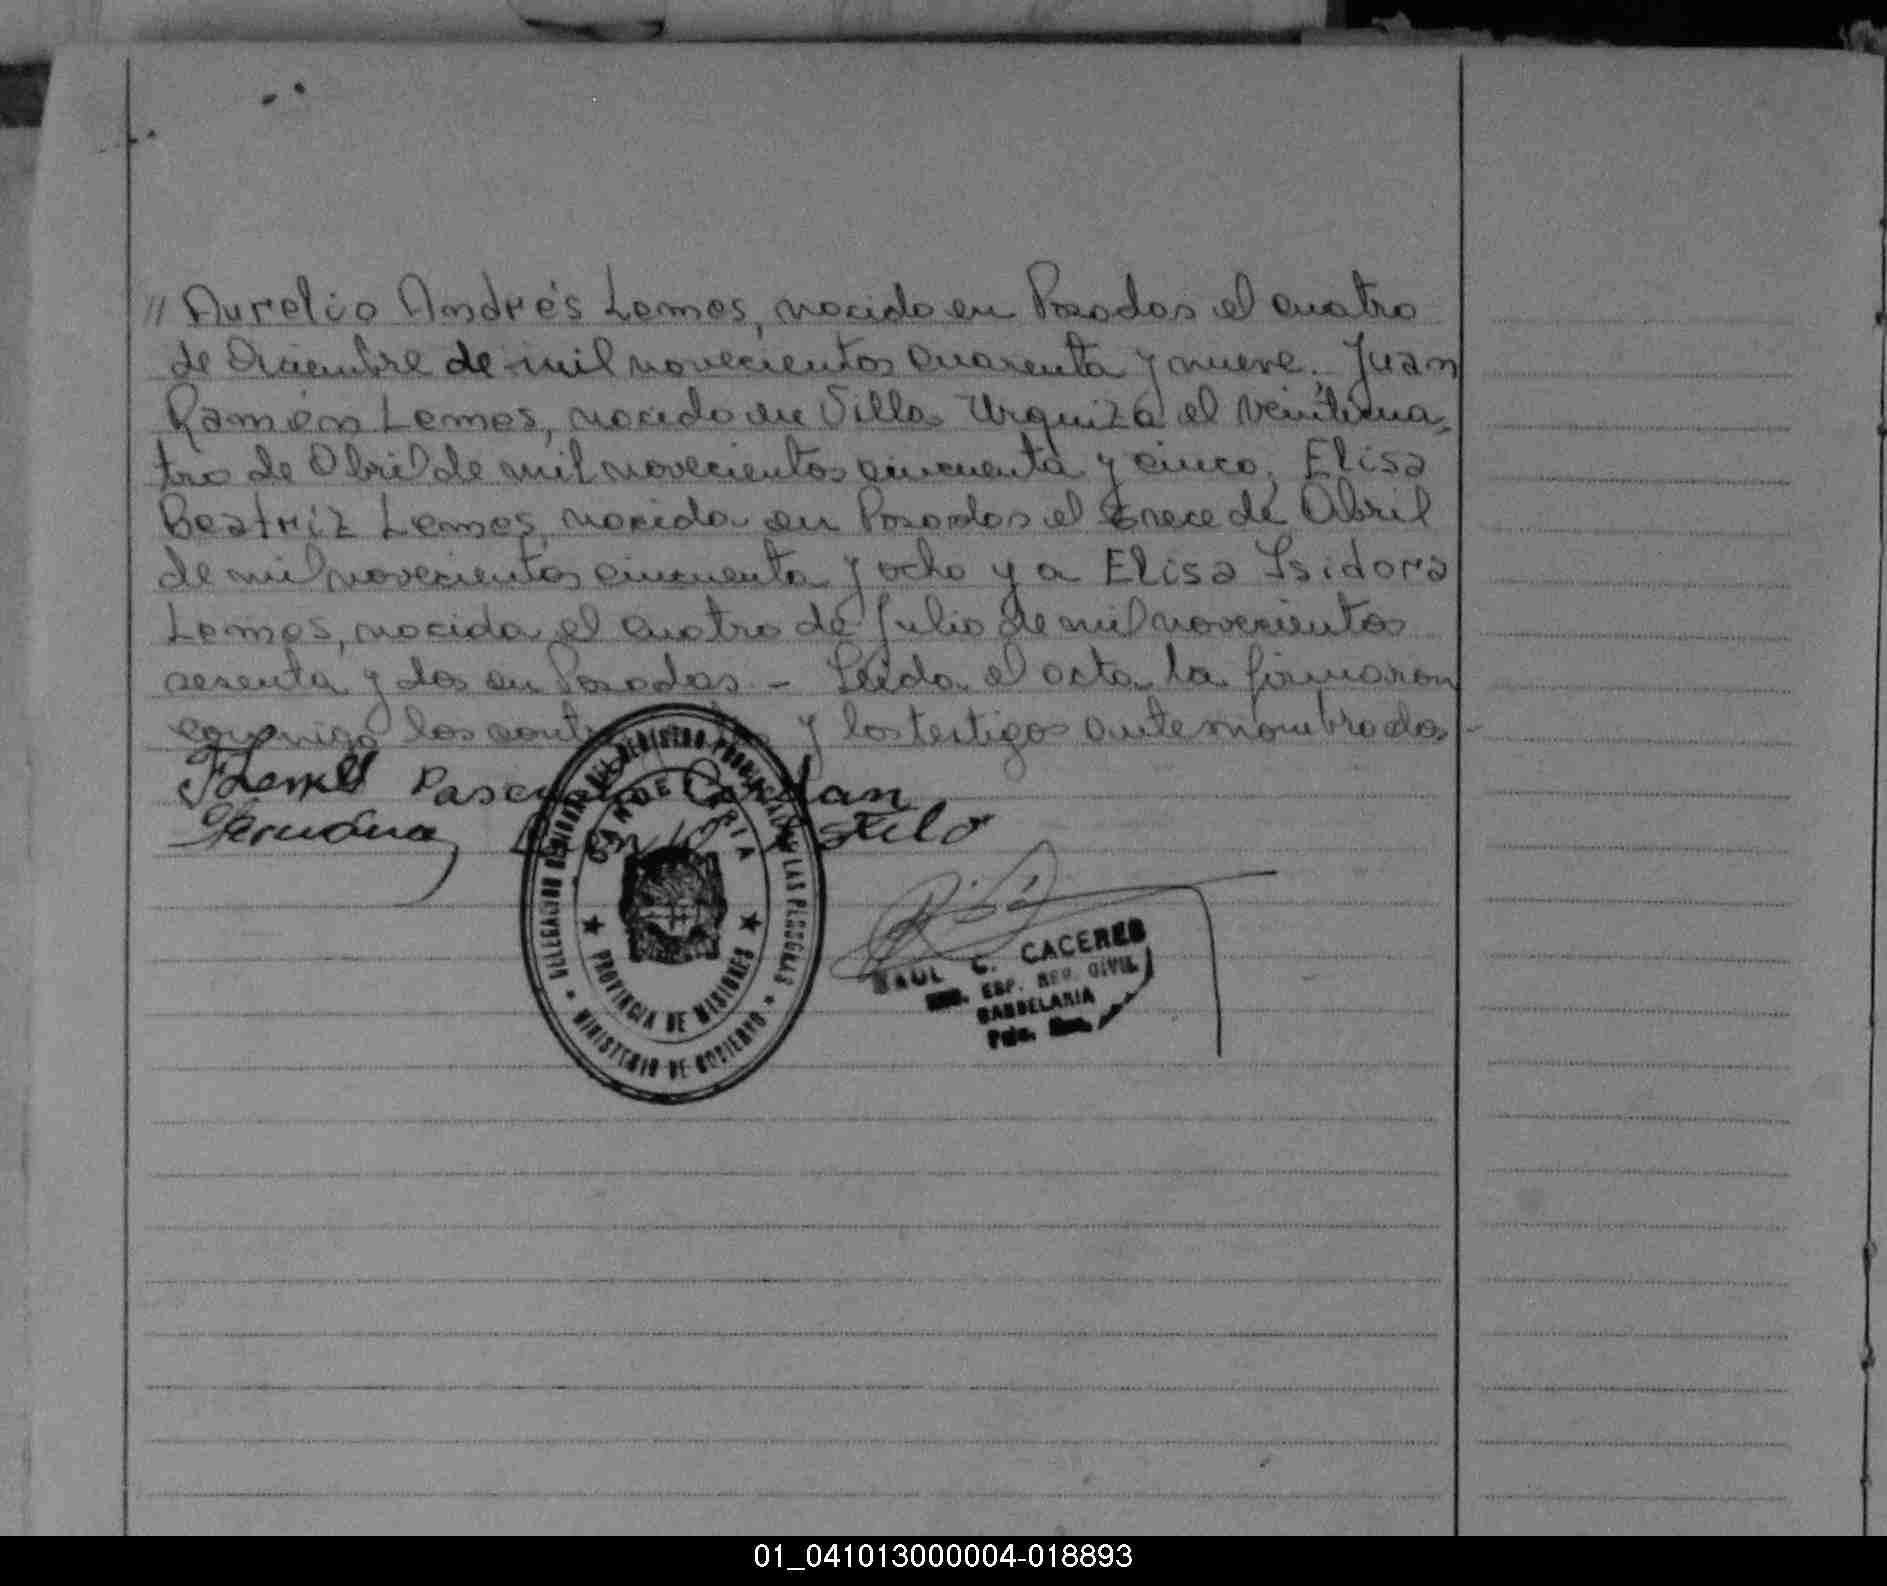 // Aurelio Andrés Lemos, nacido en Posadas el cuatro
de Diciembre de mil novecientos cuarenta y nueve; Juan
Ramón Lemos, nacido en Villa Urquiza el veinticua-
tro de Abril de mil novecientos cincuenta y cinco; Elisa
Beatriz Lemos, nacida en Posadas el trece de Abril
de mil novecientos cincuenta y ocho y a Elisa Isidora
Lemos, nacida el cuatro de Julio de mil novecientos
sesenta y dos en Posadas. - Leída el acta la firmaron
conmigo los y los testigos antenombrados -
DEL REGISTRO PROVINCIAL DE LAS PERSONAS
CANDELARIA
PROVINCIA DE MISIONES
MINISTERIO DE GOBIERNO
RAUL C. CACERES
REG. CIVIL
01_041013000004-018893